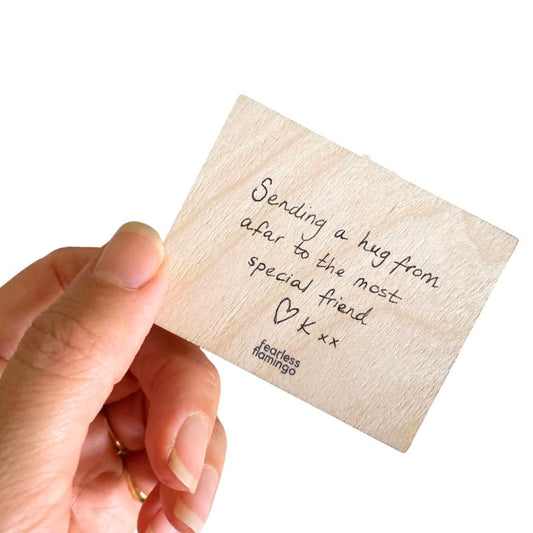 Sending a hug from
afar to the most
special friend
♡ K xx
fearless
flamingo